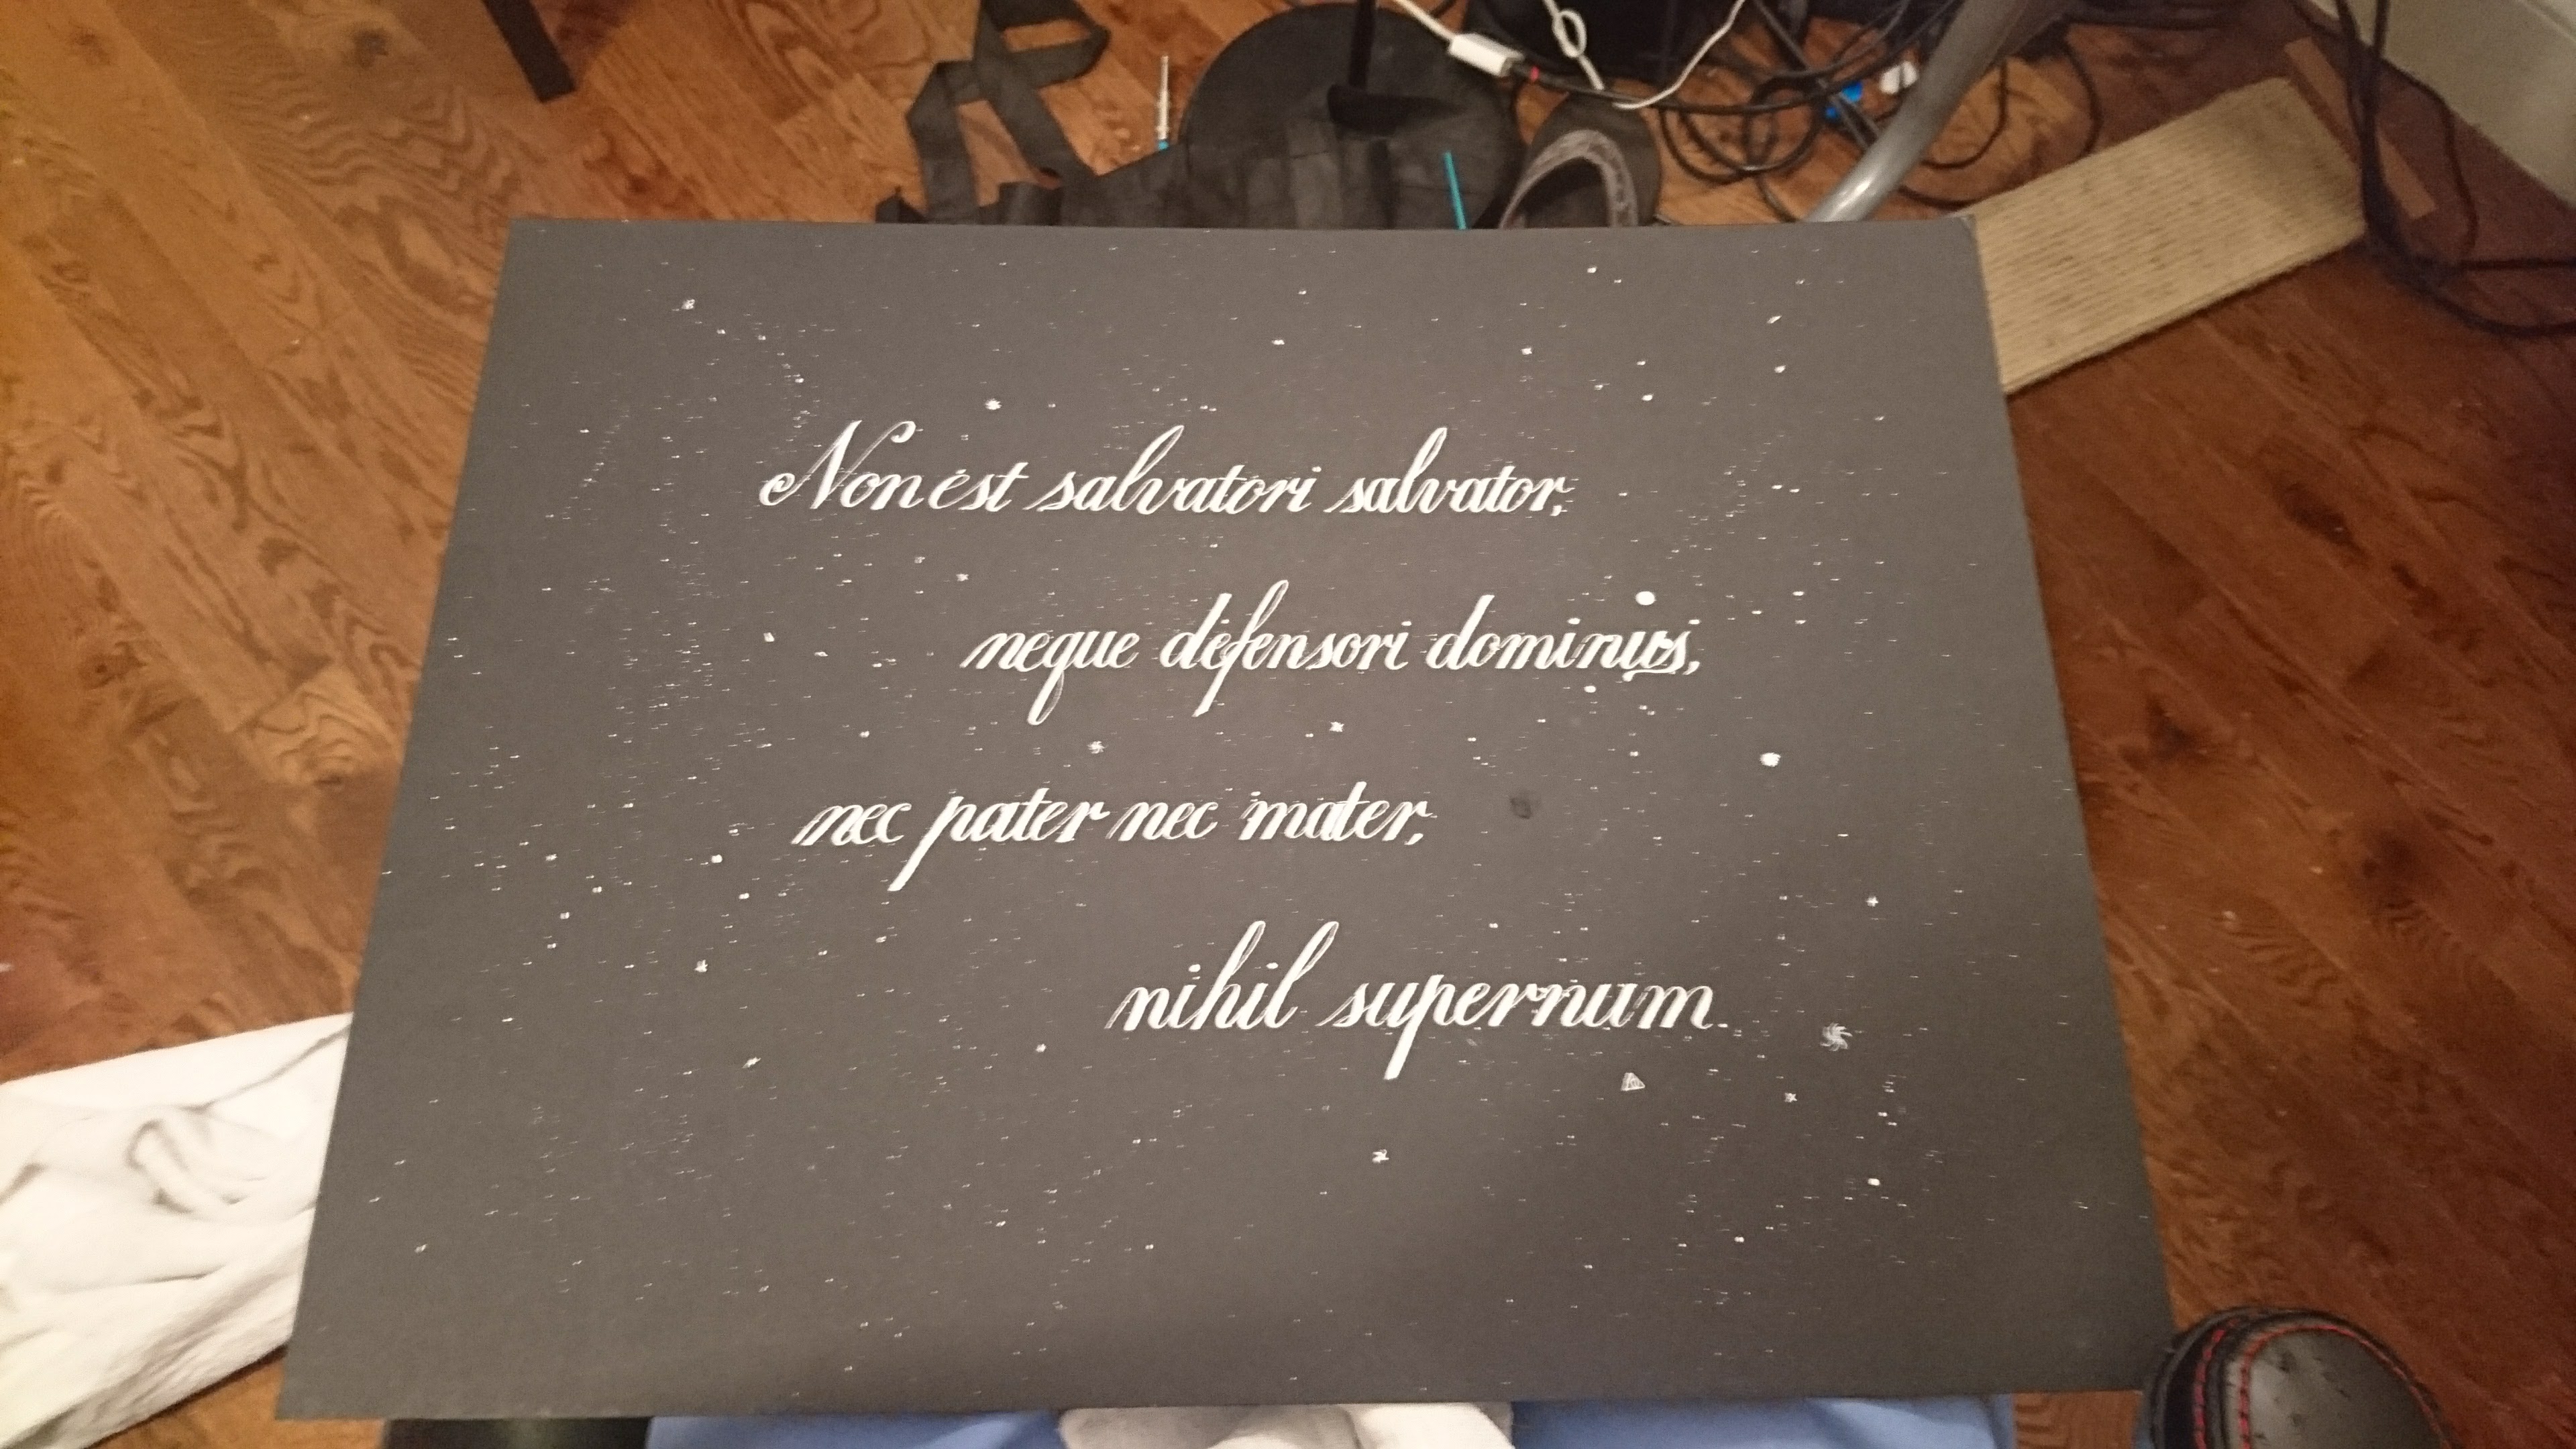 Non est salvatori salvator,
neque defensori dominus,
nec pater nec mater,
nihil supernum.